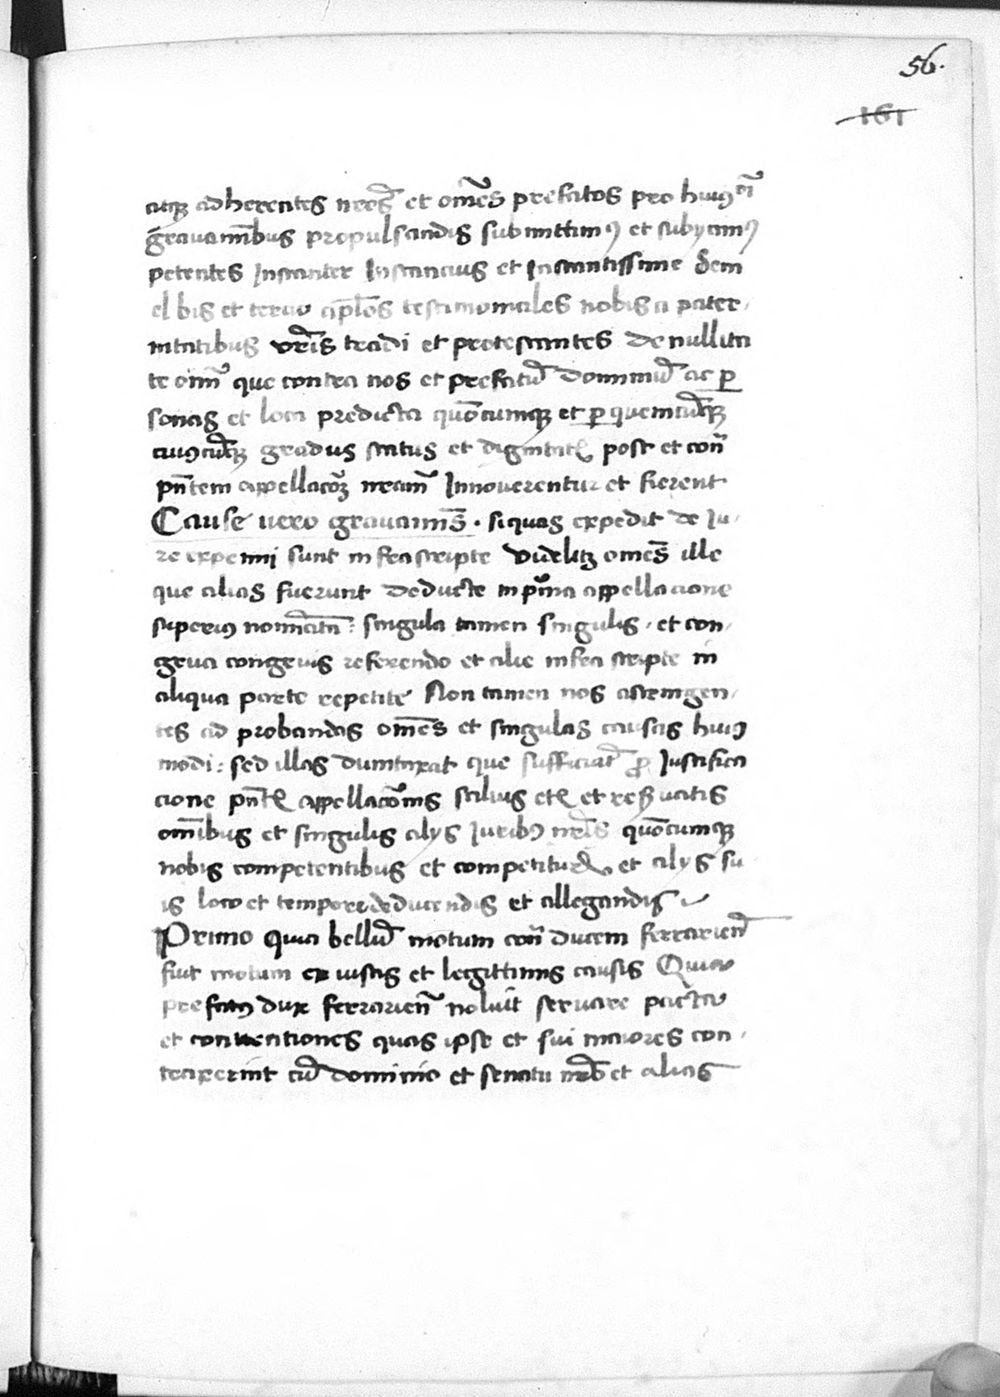 56.
161
atqꝫ adherentes nr̄os et om̄es prefatos pro huiꝰ cī
grauam̄ibus propulsandis submittimꝰ et subycimꝰ
petentes Instanter Instancius et Instantissime Sem
el bis et tercio ap̄los testimoniales nobis a pater-
nitatibus vr̄is tradi et protestantes de nullita
te oīm que contra nos et prefatū dominiū ac ꝑ
sonas et loca predicta quōcumqꝫ et ꝑ quemcūqꝫ
cuiꝰcūqꝫ gradus status et dignitatꝭ post et con̄
pn̄tem appellacōꝫ nr̄am Innouerentur et fierent
Cause uero grauamīs . siquas expedit de Iu-
re exprimi sunt infrascripte videlitꝫ omēs ille
que alias fuerunt deducte in pͥma appellacione
superiꝰ nomīata : singula tamen singulis . et con-
grua congruis referendo et alie infra scripte in
aliqua parte repetite Non tamen nos astringen-
tes ad probandas om̄es et singulas causas huiꝰ
modi : sed illas dumtaxat que sufficiāt ꝓ Iustifica
cione pn̄tꝭ appellacōnis saluis etꝭ et reẜuatis
om̄ibus et singulis alys Iuribꝰ nr̄is quōcumqꝫ
nobis competentibus et competiturꝭ et alys su
is loco et tempore deducendis et allegandis
Primo quia bellū motum con̄ ducem ferrarien̄
fuit motum ex iustis et legittimis causis Quia
prefatꝰ dux ferrarien̄ noluit seruare pacta
et conuentiones quas ipse et sui maiores con-
traxerint cū dominio et senatu nr̄o et alias